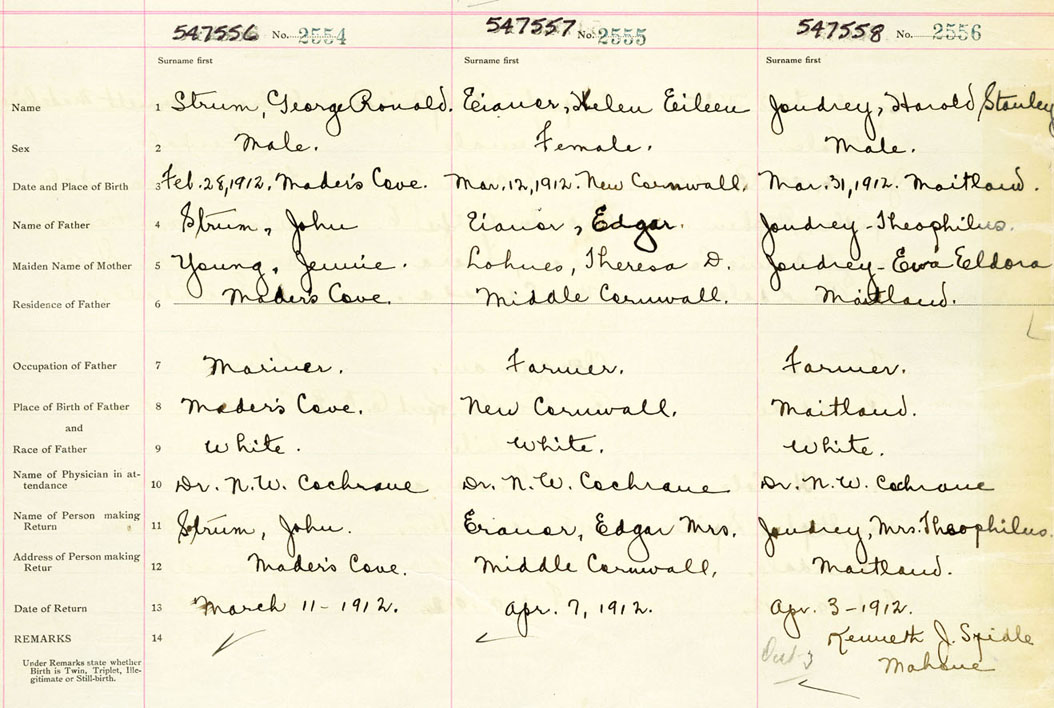 547556 No. 2554 547557 No. 2555 547558 No. 2556
Surname first Surname first Surname first
Name 1 Strum, George Ronald. Eianor, Helen Eileen Joudrey, Harold Stanley
Sex 2 Male. Female. Male.
Date and Place of Birth 3 Feb. 28, 1912. Mader's Cove. Mar. 12, 1912. New Cornwall. Mar. 31, 1912. Maitland.
Name of Father 4 Strum, John Eianor, Edgar. Joudrey - Theophilus.
Maiden Name of Mother 5 Young, Jennie. Lohnes, Theresa D. Joudrey - Ewa Eldora
Residence of Father 6 Mader's Cove. Middle Cornwall. Maitland.
Occupation of Father 7 Mariner. Farmer. Farmer.
Place of Birth of Father 8 Mader's Cove. New Cornwall. Maitland.
and
Race of Father 9 White. White. White.
Name of Physician in at-
tendance 10 Dr. N.W. Cochrane Dr. N.W. Cochrane Dr. N.W. Cochrane
Name of Person making
Return 11 Strum, John. Eianor, Edgar Mrs. Joudrey, Mrs. Theophilus.
Address of Person making
Retur 12 Mader's Cove. Middle Cornwall, Maitland.
Date of Return 13 March 11-1912. Apr. 7, 1912. Apr. 3-1912.
REMARKS 14 Kenneth J. Spidle
Mahone
Under Remarks state whether
Birth is Twin, Triplet, Ille-
gitimate or Still-birth.